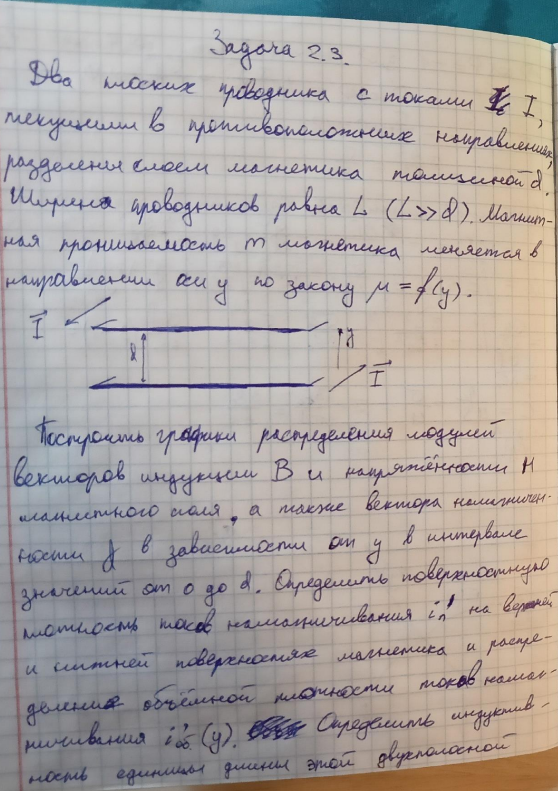 Задача 2.3.
Два плоских проводника с токами I,
текущими в противоположных направлениях,
разделены слоем магнетика толщиной d.
Ширина проводников равна L (L>>d). Магнит-
ная проницаемость m магнетика меняется в
направлении оси y по закону μ = f(y).
I d y I
Построить графики распределения модулей
векторов индукции B и напряжённости H
магнитного поля, а также вектора намагничен-
ности J в зависимости от y в интервале
значений от 0 до d. Определить поверхностную
плотность токов намагничивания i'п на верхней
и нижней поверхностях магнетика и распре-
деление объёмной плотности токов намаг-
ничивания i'об (y). Определить индуктив-
ность единицы длины этой двухполосной